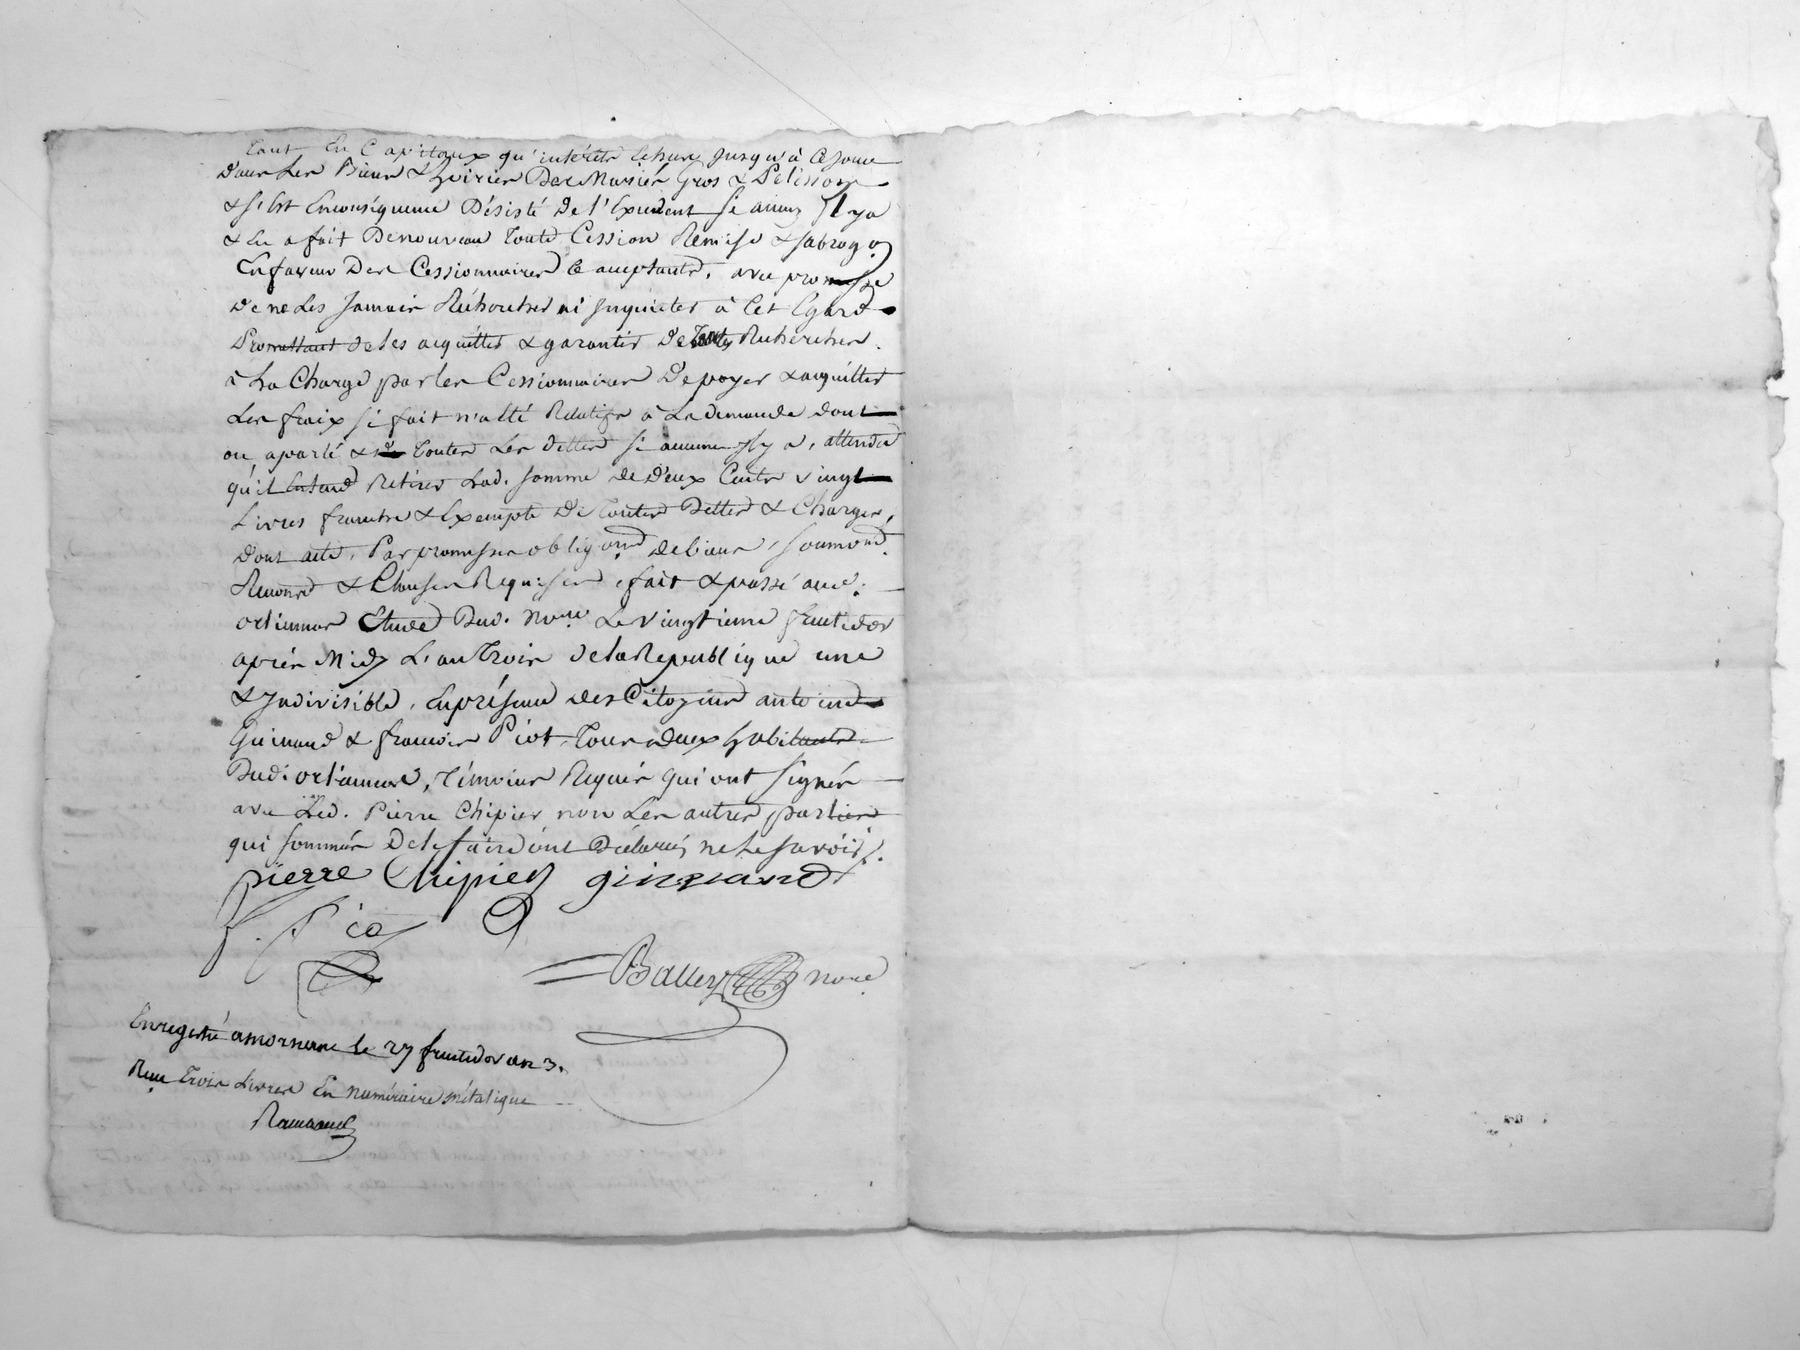 tant En Capitaux qu'intérêts Echurs Jusqu'à Ce Jour
dans Les Biens & hoiries Des Mariés Gros & Pelisson
& s'est En conséquence Désisté de l'Excedent si aucun Il y a
& En a fait De nouveau toute Cession Remise & subrog.on
En faveur Des Cessionnaires Ce acceptants, avec promesse
De ne Les Jamais Rechercher ni Inquiéter à Cet Egard
Promettant de les acquitter & garantir De toutes Recherches.
à La Charge par les Cessionnaires De payer & acquitter
Les fraix si fait n'a été Relatifs à La demande dont
on a parlé & de toutes Les dettes si aucunes Il y a, attendu
qu'il Entend Retirer Lad. somme de Deux Cents vingt
Livres franche & Exempte De toutes Dettes & Charges,
dont acte, Par promesses oblig.ons de biens, soumons.
Renons. & Clauses Requises, fait & passé aud.
orliennas Etude Dud. No.re Le vingtieme fructidor
après Midy L'an Trois de la Republique une
& Indivisible, En présence des Citoyens antoine
Guinand & francois Piot Tous deux habitants
Dud. orliennas, Témoins Requis qui ont signés
avec Led. Pierre Chipier non Les autres parties
qui sommés De le faire ont Déclarés ne Le savoir
pierre Chipier ginnand
f. Pio
Balley no.re
Enregistré a mornant le 27 fructidor an 3.
Reçu Trois Livres En numéraire métalique